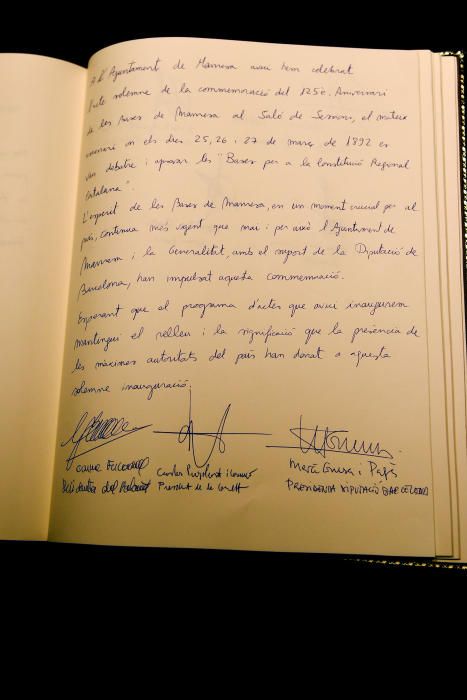 A l'Ajuntament de Manresa avui hem celebrat
l'acte solemne de la commemoració del 125è. Aniversari
de les Bases de Manresa al Saló de Sessions, el mateix
escenari on els dies 25, 26 i 27 de març de 1892 es
van debatre i aprovar les "Bases per a la Constitució Regional
Catalana".
L'esperit de les Bases de Manresa, en un moment crucial per al
país, continua més vigent que mai i per això l'Ajuntament de
Manresa i la Generalitat, amb el suport de la Diputació de
Barcelona, han impulsat aquesta commemoració.
Esperant que el programa d'actes que avui inaugurem
mantingui el relleu i la significació que la presència de
les màximes autoritats del país han donat a aquesta
solemne inauguració.
Carme Forcadell Carles Puigdemont i Casamajó Mercè Conesa i Pagès
Presidenta del Parlament President de la Generalitat PRESIDENTA DIPUTACIÓ BARCELONA